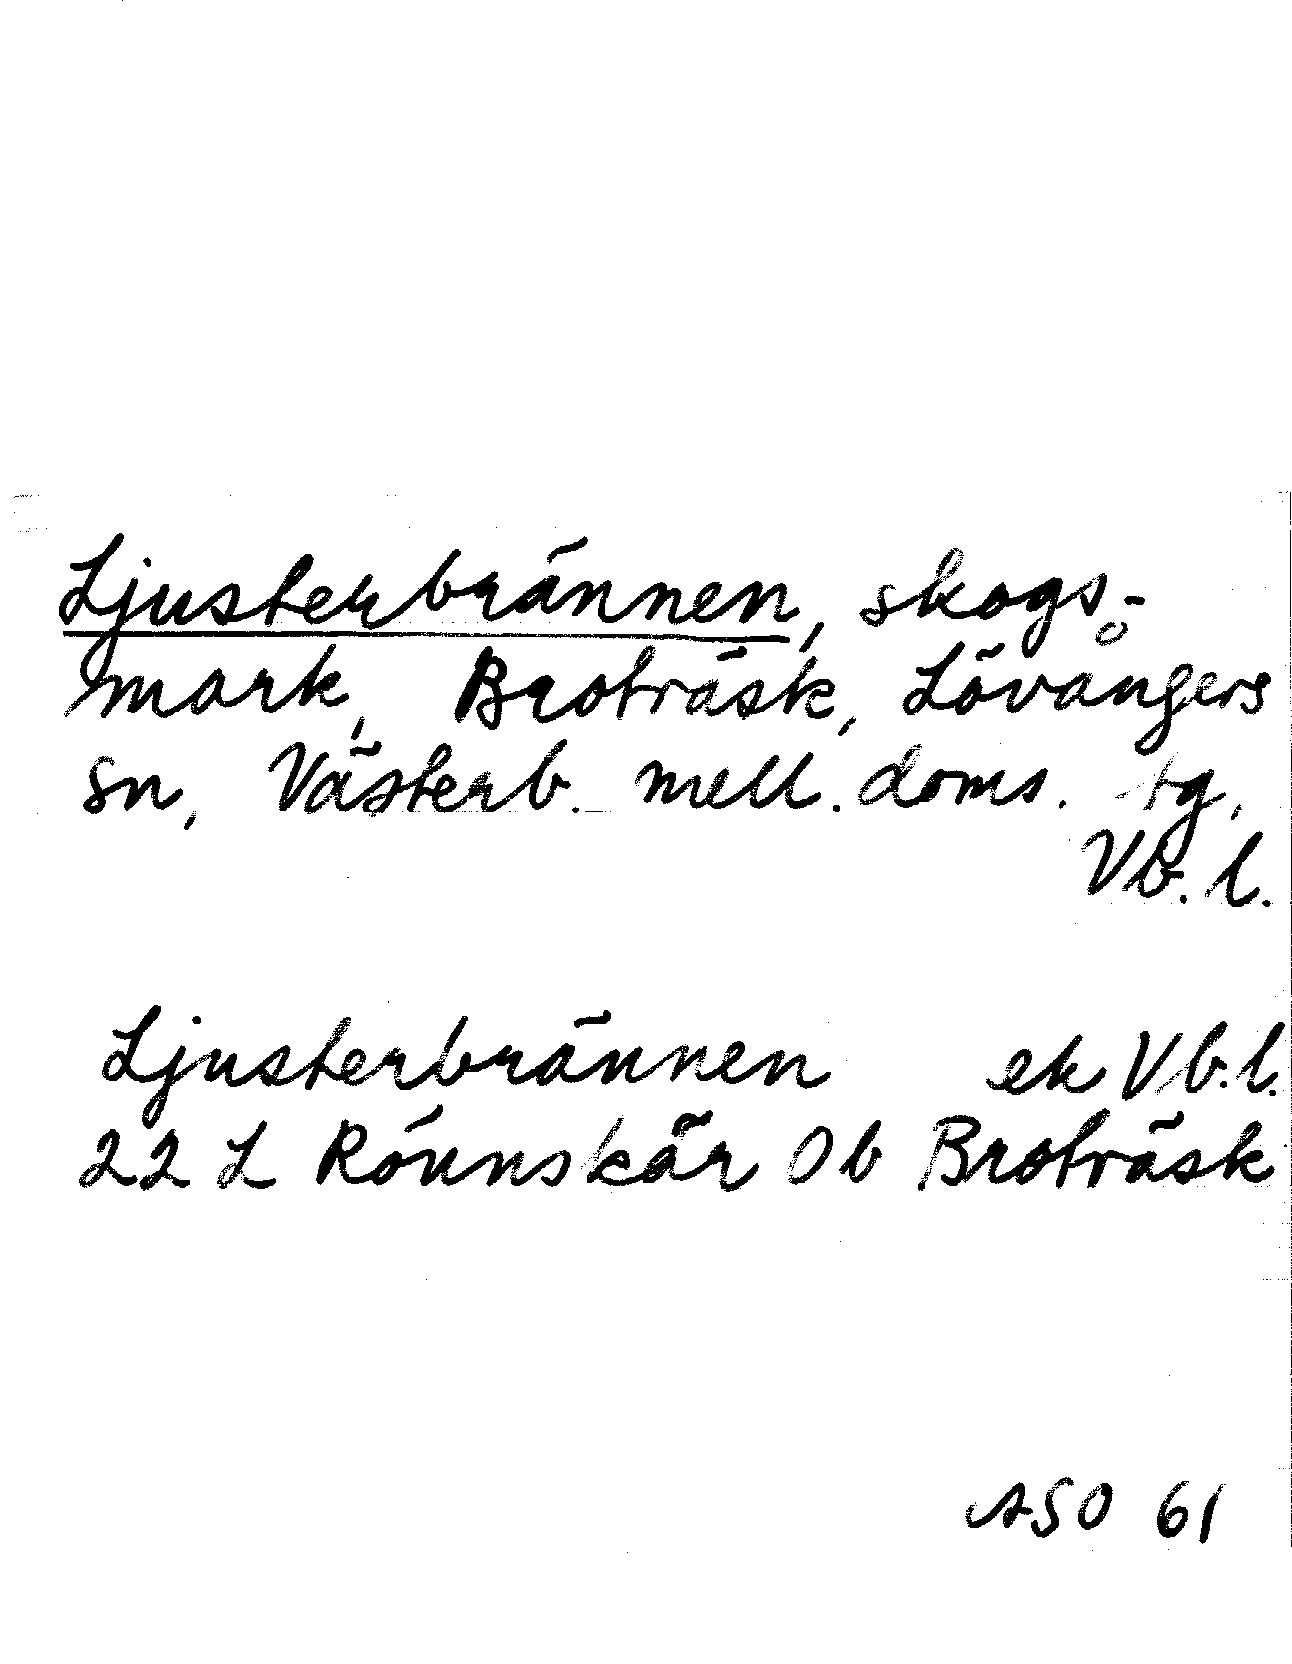 Ljusterbrännen, skogs-
mark, Broträsk, Lövångers
sn, Västerb. mell. doms. tg,
Vb. l.
Ljusterbrännen ek Vb. l.
22 L Rönnskär Ob Broträsk
ASO 61